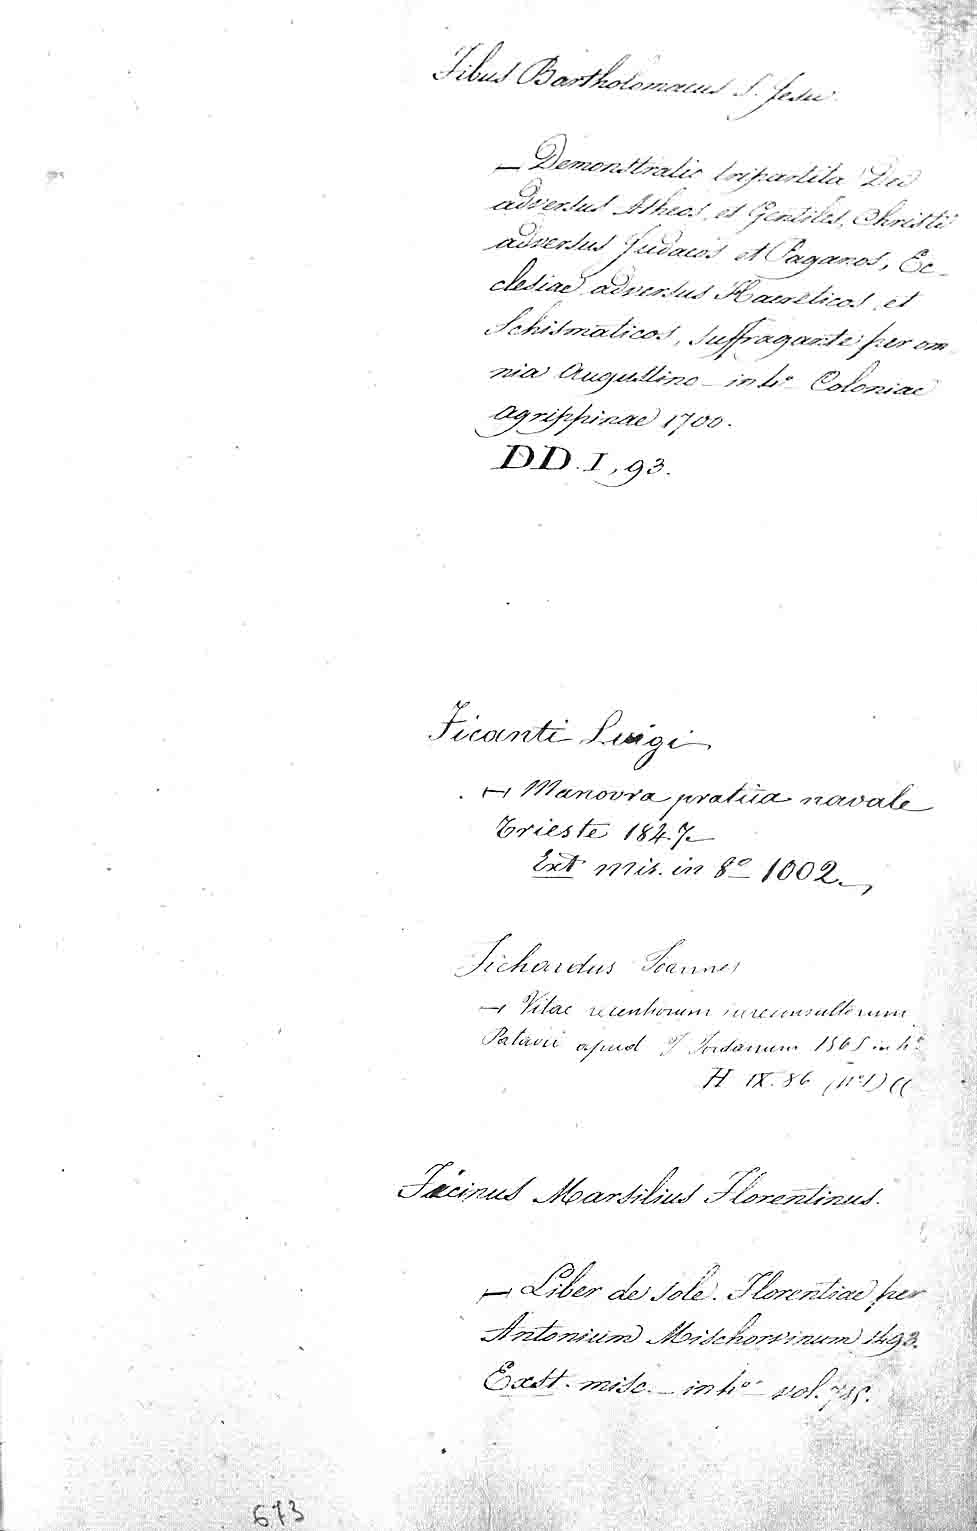 Fibus Bartholomaeus S. Jesu.
— Demonstratio tripartita Dei
adversus Atheos, et Gentiles, Christi
adversus Judaeos et Paganos, Ec-
clesiae adversus Haereticos, et
Schismaticos, suffragante per om-
nia Augustino - in 4º Coloniae
Agrippinae 1700.
DD. I, 93.
Ficanti Luigi
— Manovra pratica navale
Trieste 1847
Ext mis. in 8º 1002.
Fichardus Joannes
— Vitae recentiorum iureconsultorum
Patavii apud J Jordanum 1565 in 4º
H IX. 86 (nº 1)
Ficinus Marsilius Florentinus.
— Liber de sole. Florentiae per
Antonium Mischominum 1493.
Exst. misc. - in 4º - vol.
673